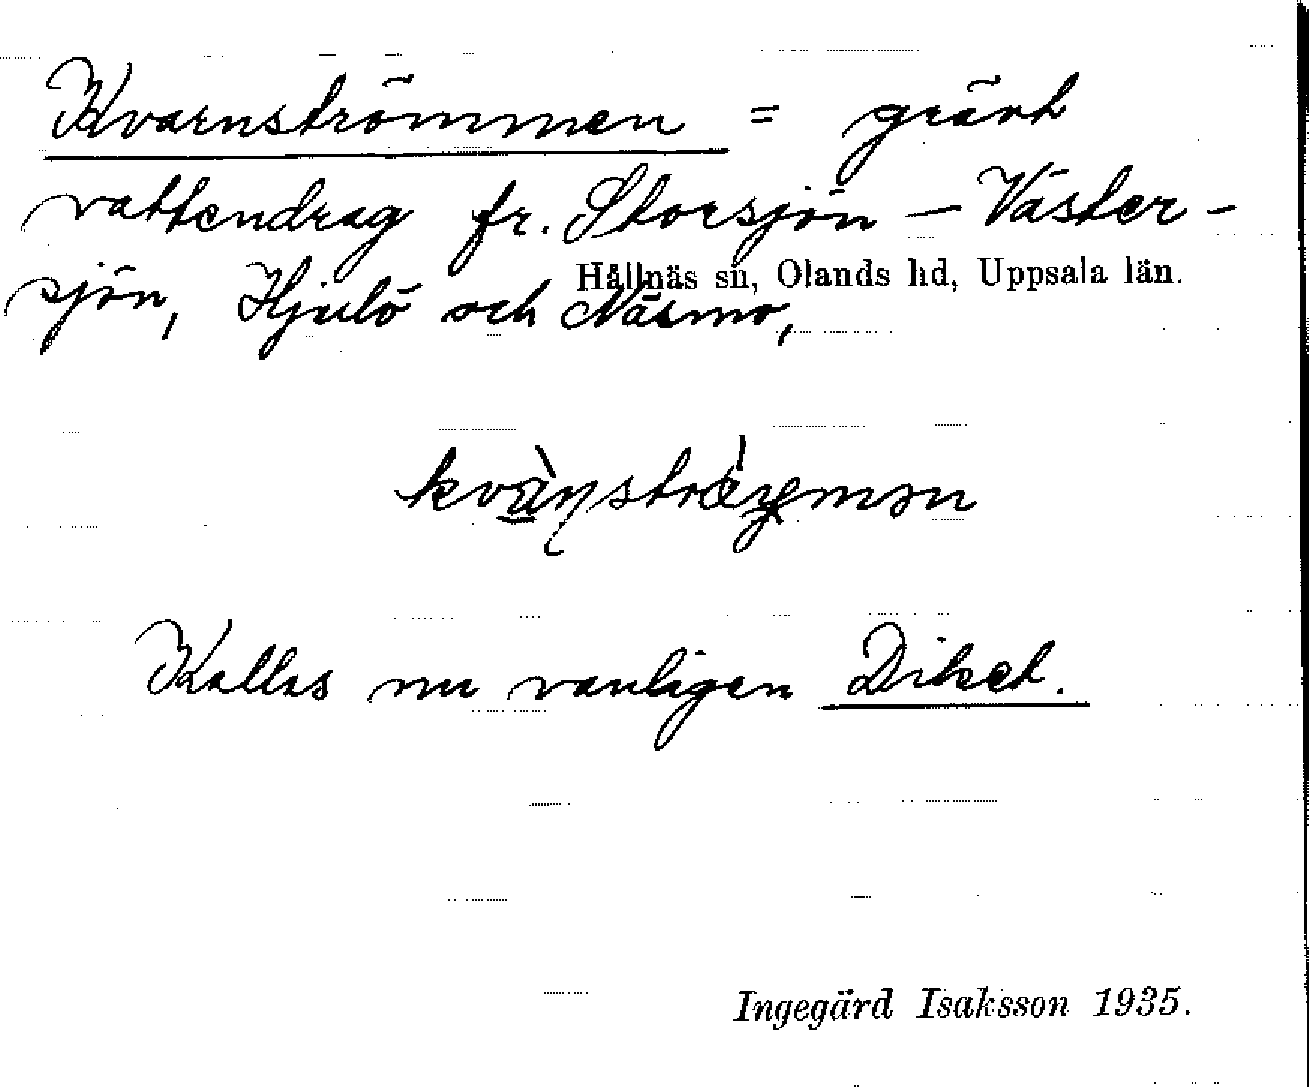 Kvarnströmmen = grävt
vattendrag fr. Storsjön – Väster-
Hållnäs sn, Olands hd, Uppsala län.
sjön, Hjulö och Näsmo,
Kallas nu vanligen Diket.
Ingegärd Isaksson 1935.